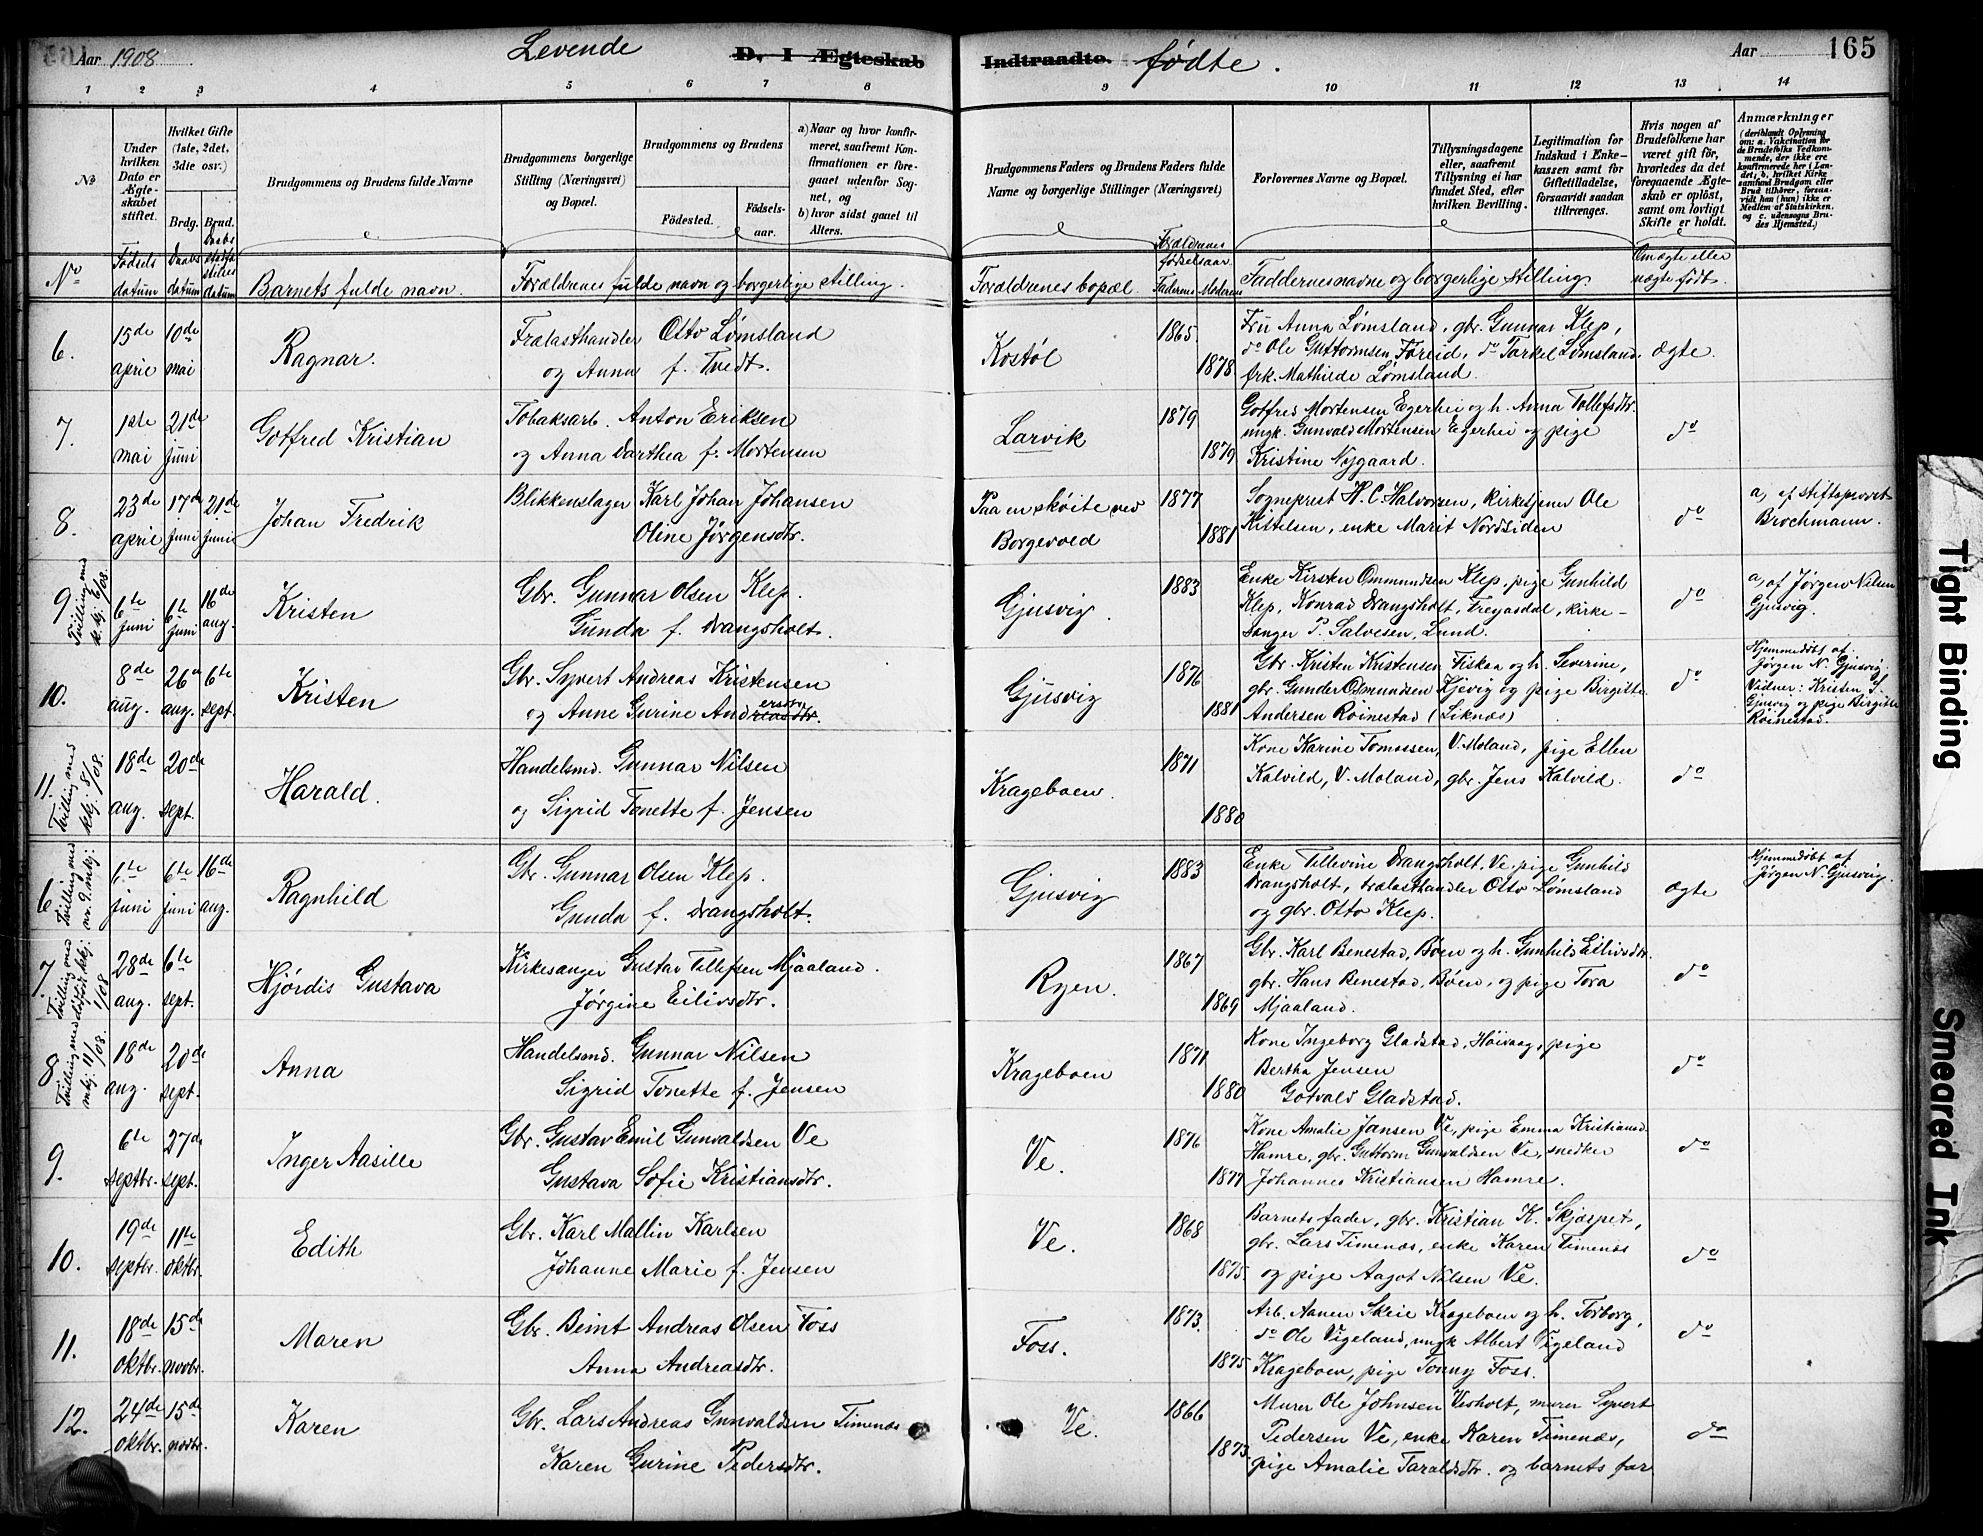 Aar 1908 Levende D. I Ægteskab Indtraadte. fødte. Aar 165
1 2 3 4 5 6 7 8 9 10 11 12 13 14
No
Under hvilken Dato er Ægteskabet stiftet.
Hvilket Gifte (1ste, 2det, 3die osv.)
Brdg. Brud.
Brudgommens og Brudens fulde Navne
Brudgommens borgerlige Stilling (Næringsvei) og Bopæl.
Brudgommens og Brudens
Fødested. Fødselsaar.
a) Naar og hvor konfirmeret, saafremt Konfirmationen er foregaaet udenfor Sognet, og
b) hvor sidst gaaet til Alters.
Brudgommens Faders og Brudens Faders fulde Navne og borgerlige Stillinger (Næringsvei)
Forlovernes Navne og Bopæl.
Tillysningsdagene eller, saafremt Tillysning ei har fundet Sted, efter hvilken Bevilling.
Legitimation for Indskud i Enkekassen samt for Giftetilladelse, forsaavidt saadan tiltrænges.
Hvis nogen af Brudefolkene har været gift før, hvorledes da det foregaaende Ægteskab er opløst, samt om lovligt Skifte er holdt.
Anmærkninger
(deriblandt Oplysning om: a. Vakcination for de Brudefolks Vedkommende, der ikke ere konfirmerede her i Landet, b. hvilket Kirkesamfund Brudgom eller Brud tilhører, forsaavidt han (hun) ikke er Medlem af Statskirken. og c. udensogns Brudes Hjemsted.)
No Fødsels datum Daabs datum Daabs stadfæstelses datum Barnets fulde navn. Forældrenes fulde navn og borgerlige stilling. Forældrenes bopæl. Forældrenes fødselsaar. Faderens Moderens Faddernes navne og borgerlige stilling. Om ægte eller uægte født.
6. 15de april 10de mai Ragnar. Trælasthandler Otto Lømsland
og Anna f. Tvedt. Kostøl 1865 1878
Fru Anna Lømsland, gbr. Gunnar Klep,
do Ole Guttormsen Føreid, do Tarkel Lømsland. ægte.
frk. Mathilde Lømsland.
7. 1ste mai 21de juni Gotfred Kristian Tobaksarb. Anton Eriksen
og Anna Darthea f. Mortensen Larvik 1879 1879
Gotfred Mortensen Egerhei og h. Anna Tollefsdtr.
ungk. Gunvald Mortensen Egerhei og pige do
Kristine Nygaard.
8. 23de april 17de juni 21de juni Johan Fredrik Blikkenslager Karl Johan Johansen
Oline Jørgensdtr. Paa en skøite ved Borgevold 1877 1881
Sogneprest H. C. Halvorsen, kirketjener Ole
Kittelsen, enke Marit Nordsiden do
a) af stiftsprovst Brochmann.
9. Tvilling med k.kj. 6/08. 6te juni 6te juni 16de aug. Kristen Gbr. Gunnar Olsen Klep.
Gunda f. Drangsholt. Gjusvig. 1883
Enke Kirsten Ommundsen Klep, pige Gunhild
Klep, Konrad Drangsholt, Tregasdal, kirke-
sanger P. Salvesen, Lund. do
a) af Jørgen Nilsen Gjusvig.
10. 8de aug. 26de aug. 6te sept. Kristen Gbr. Syvert Andreas Kristensen
og Anne Gurine Andreasdtr. ersdtr. Gjusvig 1876 1881
Gbr. Kristen Kristensen Fiskaa og h. Severine,
gbr. Gunder Osmundsen Kjevig og pige Birgitte do
Andersen Røinestad (Liknæs)
Hjemmedøbt af Jørgen N. Gjusvig. Vidner: Kristen S. Gjusvig og pige Birgitte Røinestad.
11. Tvilling med kkj. 8/08. 18de aug. 20de sept. Harald. Handelsmd. Gunnar Nilsen
og Sigrid Tonette f. Jensen Krageboen. 1871 1880
Kone Karine Tomessen, V. Moland, pige Ellen
Kalvild, V. Moland, gbr. Jens Kalvild. do
6 Tvilling med nr. 9. mkj: 6te juni 6te juni 16de aug. Ragnhild Gbr. Gunnar Olsen Klep.
Gunda f. Drangsholt. Gjusvig 1883
Enke Tellevine Drangsholt, Ve, pige Gunhild
Drangsholt, trælasthandler Otto Lømsland ægte
og gbr. Otto Klep.
Hjemmedøbt af Jørgen N. Gjusvig.
7 Tvilling med dødfødt kkj: 1/08 28de aug. 6te sept. Hjørdis Gustava Kirkesanger Gustav Tellefsen Mjaaland.
Jørgine Eilivsdtr. Ryen. 1867 1869
Gbr. Karl Benestad, Bøen og h. Gunhild Eilivsdtr.
gbr. Hans Benestad, Bøen, og pige Tora do
Mjaaland.
8 Tvilling med mkj. 11/08. 18de aug. 20de sept. Anna Handelsmd. Gunnar Nilsen
Sigrid Tonette f. Jensen Krageboen 1871 1880
Kone Ingeborg Gladstad, Høivaag, pige
Bertha Jensen do
Gotvald Gladstad.
9. 6te septbr. 27de sept. Inger Aasille Gbr. Gustav Emil Gunvaldsen Ve
Gustava Sofie Kristiansdtr. Ve. 1876 1877
Kone Amalie Jansen Ve, pige Emma Kristiansd.
Hamre, gbr. Guttorm Gunvaldsen Ve, snedker do
Johannes Kristiansen Hamre.
10. 19de septbr. 11te oktbr. Edith Gbr. Karl Mallin Karlsen
Johanne Marie f. Jensen Ve. 1868 1875
Barnets fader, gbr. Kristian K. Skjærpet,
gbr. Lars Timenæs, enke Karen Timenæs do
og pige Aagot Nilsen Ve.
11. 18de oktbr. 15de novbr. Maren Gbr. Beint Andreas Olsen Foss
Anna Andreasdtr. Foss. 1873. 1875
Arb. Aanen Skeie Krageboen og h. Torborg,
do Ole Vigeland, ungk Albert Vigeland do
Krageboen, pige Tonny Foss.
12. 24de oktbr. 15de novbr. Karen Gbr. Lars Andreas Gunvaldsen Timenæs
Karen Gurine Pedersdtr. Ve. 1866 1873.
Murer Ole Johnsen Vesholt, murer Syvert
Pedersen Ve, enke Karen Timenæs, do
pige Amalie Taraldsdtr. og barnets far
Tight Binding
Smeared Ink